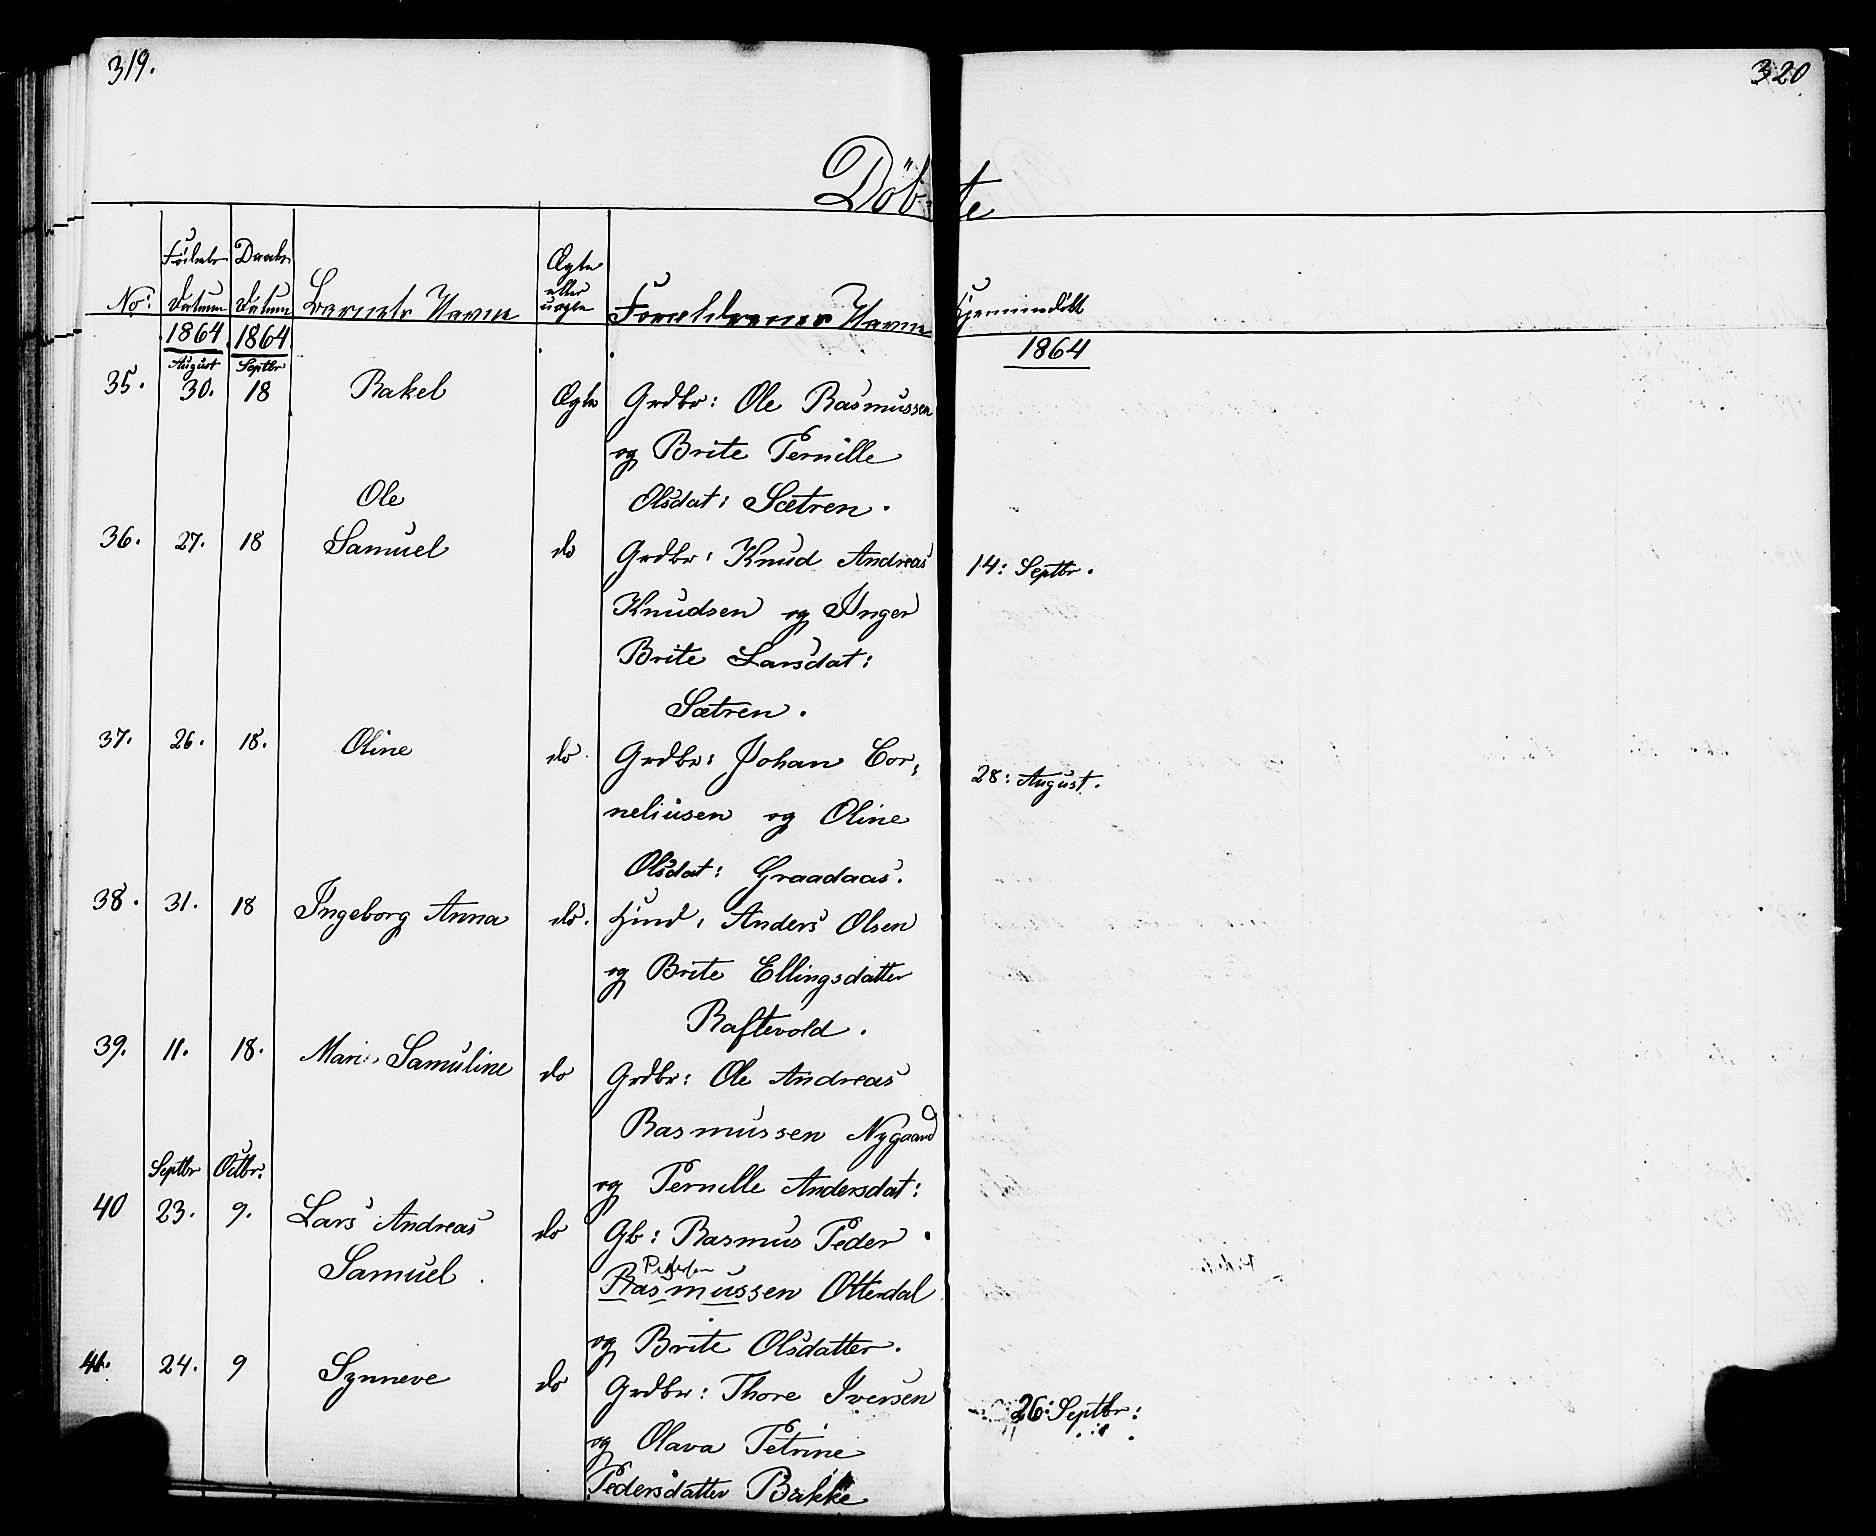 319.
320
Döbte
No:
Födsels Datum
Daabs Datum
Barnets Navn
Ægte eller uægte
Forældrenes Navn
Hjemmedöbt
1864
1864
1864
August
Septbr
35. 30. 18 Rakel Ægte Grdbr: Ole Rasmussen
og Brite Pernille
Olsdat: Sætren.
Ole
36. 27. 18 Samuel do Grdbr: Knud Andreas 14: Septbr.
Knudsen og Inger
Brite Larsdat:
Sætren.
37. 26. 18. Oline do Grdbr: Johan Cor:
28: August.
neliusen og Oline
Olsdat: Graadaas.
38. 31. 18 Ingeborg Anna do. Huusmd: Anders Olsen
og Brite Ellingsdatter
Raftevold.
39. 11. 18. Marie Samuline do Grdbr: Ole Andreas
Rasmussen Nygaard
og Pernille Andersdat:
Septbr Octbr:
40 23. 9. Lars Andreas do Gb: Rasmus Peder
Samuel.
Pedersen
Rasmussen Otterdal
og Brite Olsdatter.
41. 24. 9 Synneve do Grdbr: Thore Iversen 26: Septbr:
og Olava Petrine
Pedersdatter Bakke